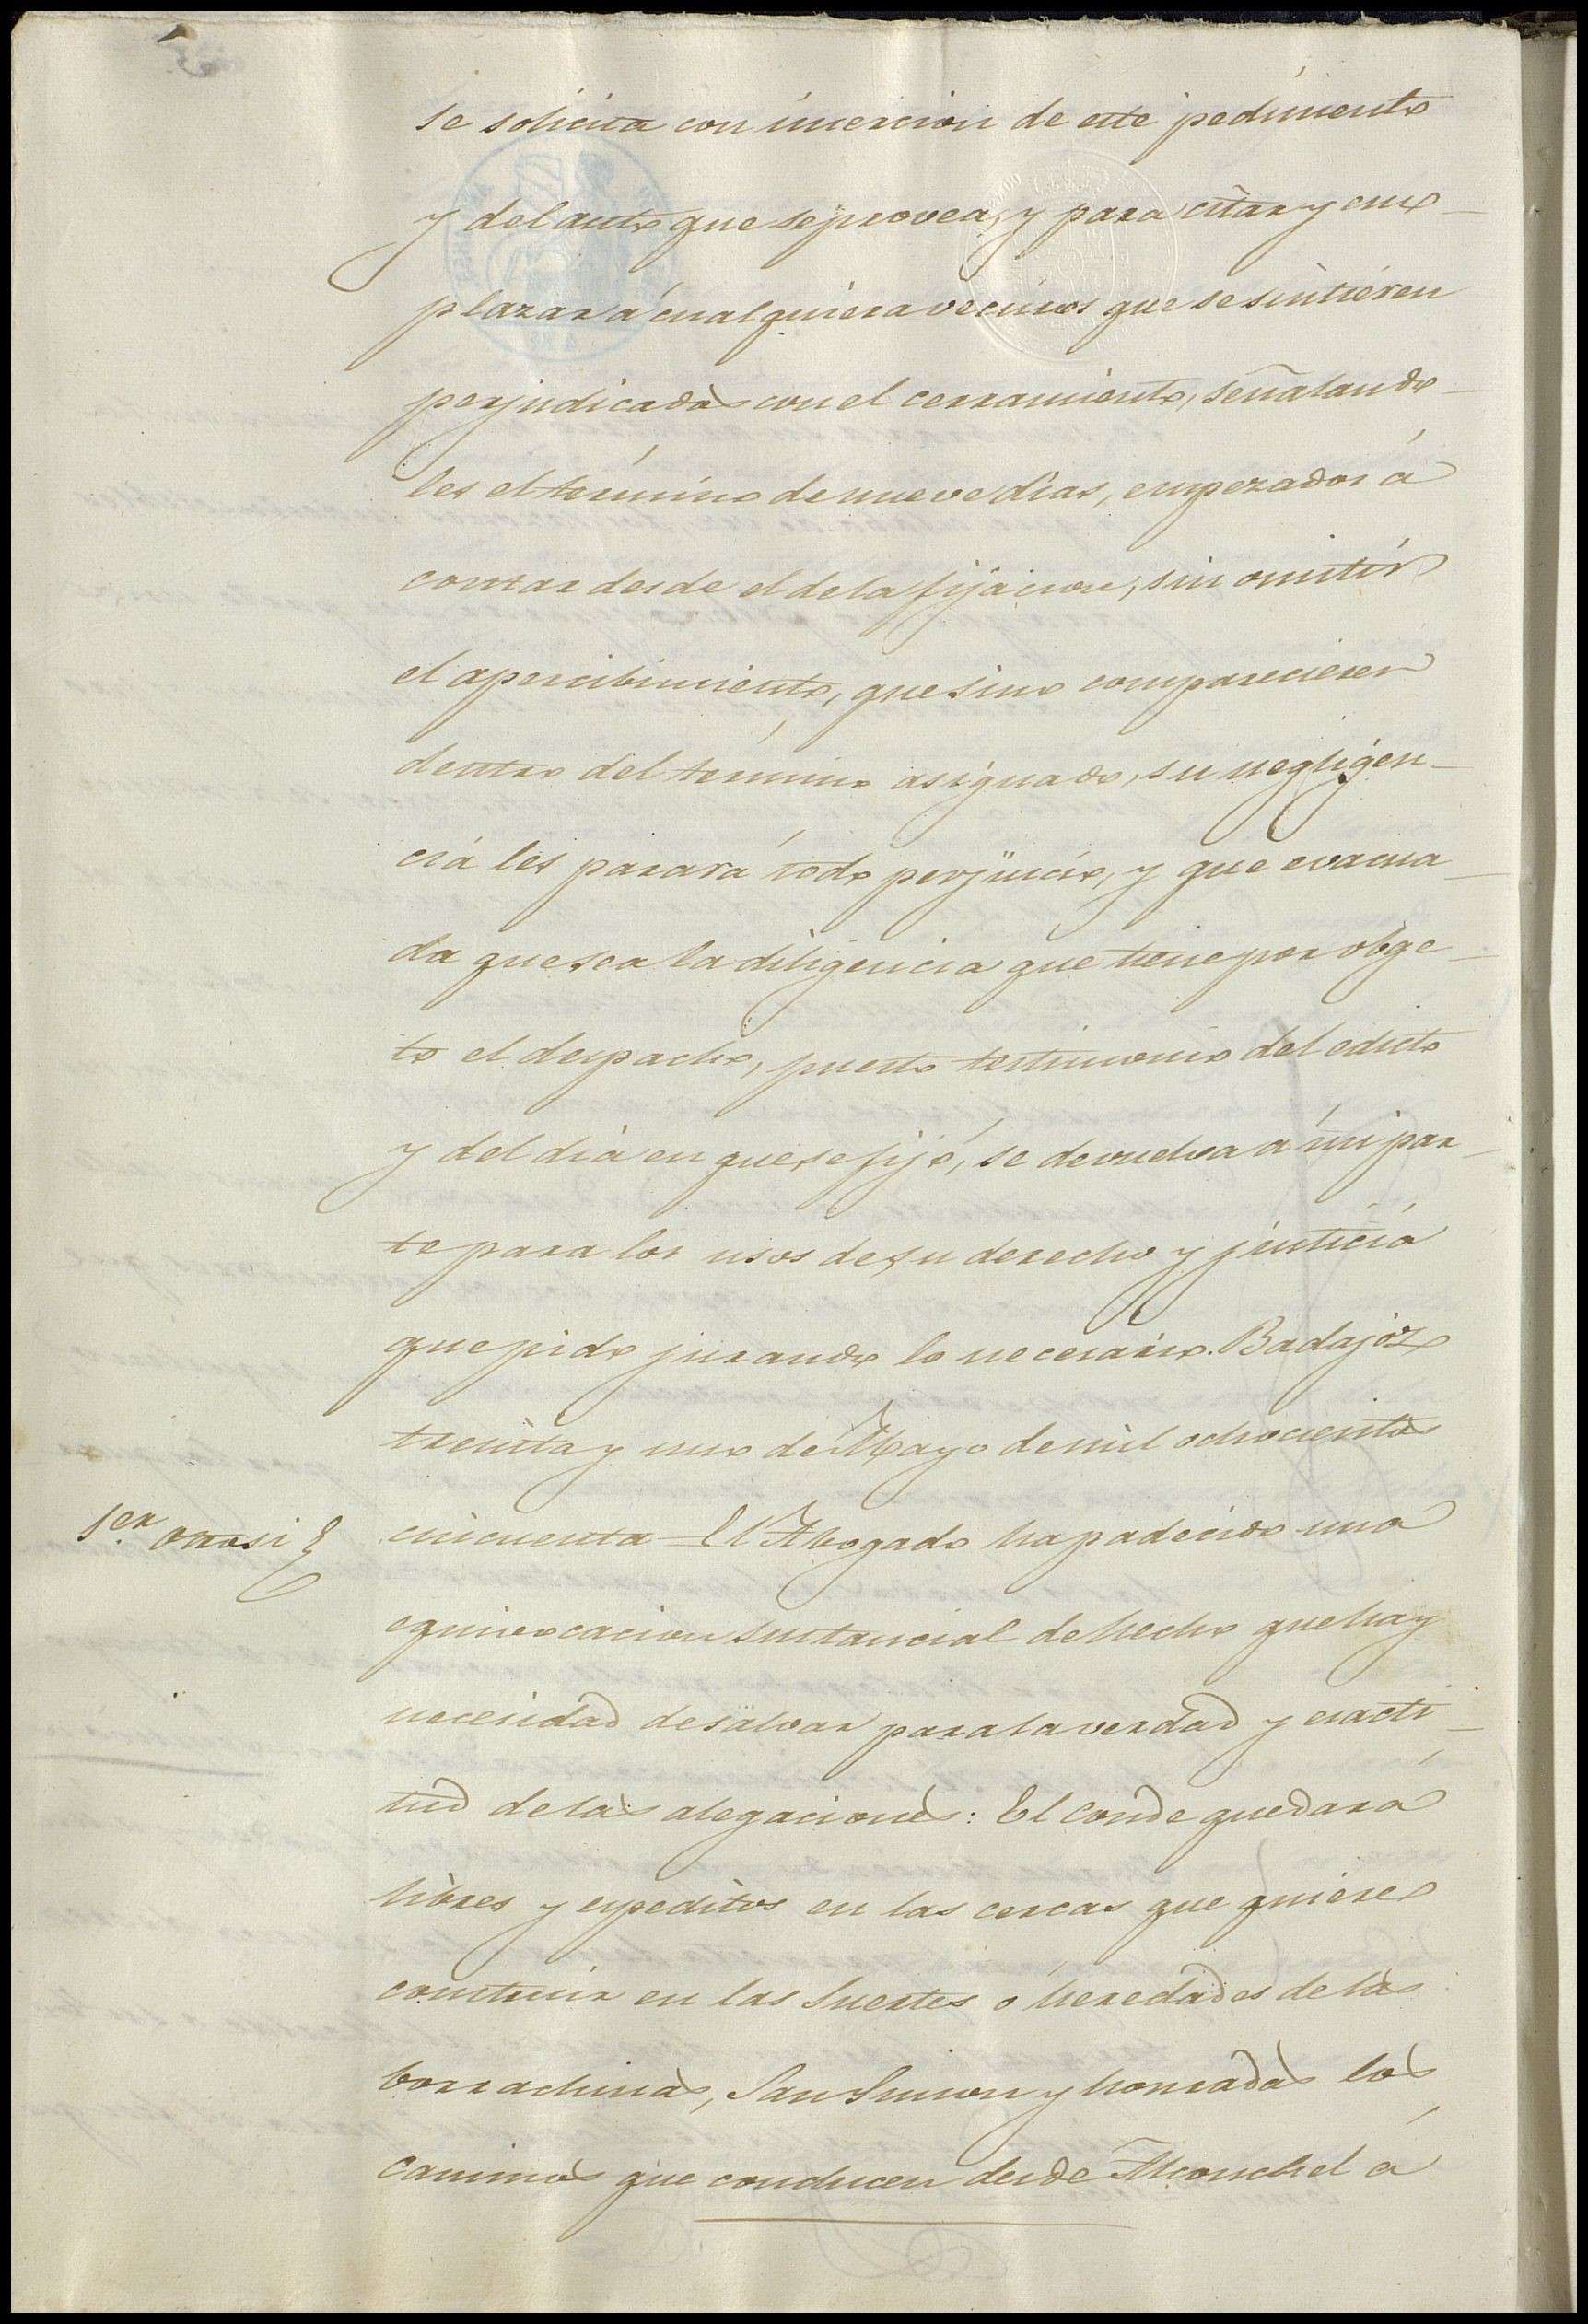 se solicita con insercion de este pedimento
y del auto que se provea, y para citar y em-
plazar á cualquiera vecinos que se sintieren
perjudicados con el cerramiento, señalando-
les el término de nueve dias, empezados á
contar desde el de la fijacion, sin omitir
el apercibimiento, que sino comparecieren
dentro del término asignado, su negligen-
cia les parará todo perjuicio, y que evacua-
da que sea la diligencia que tiene por obge-
to el despacho, puesto testimonio del edicto
y del dia en que se fijó, se devuelva á mi par-
te para los usos de su derecho y justicia
que pido jurando lo necesario. Badajoz
treinta y uno de Mayo de mil ochocientos
1.er otrosi cincuenta - El Abogado ha padecido una
equivocacion sustancial de hecho que hay
necesidad de salvar para la verdad y esacti-
tud de las alegaciones: El Conde quedará
libres y espeditos en las cercas que quiere
construir en las Suertes ó heredades de las
borrachinas, San Simon y honradas los
caminos que conducen desde Alconchel á